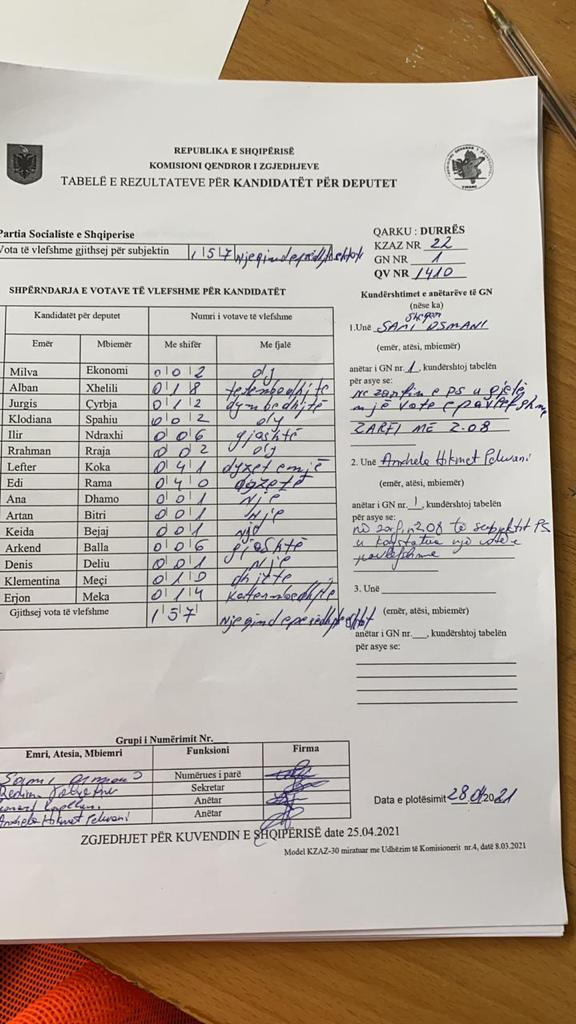 REPUBLIKA E SHQIPËRISË
KOMISIONI QENDROR I ZGJEDHJEVE
TABELË E REZULTATEVE PËR KANDIDATËT PËR DEPUTET
Partia Socialiste e Shqiperise
Vota të vlefshme gjithsej për subjektin 157 njeqindepesedhjeteshtat
QARKU : DURRËS
KZAZ NR 22
GN NR 1
QV NR 1410
SHPËRNDARJA E VOTAVE TË VLEFSHME PËR KANDIDATËT
Kandidatët për deputet Numri i votave të vlefshme
Emër Mbiemër Me shifër Me fjalë
Milva Ekonomi 002 dy
Alban Xhelili 018 tetembedhjte
Jurgis Çyrbja 012 dymbedhjtë
Klodiana Spahiu 002 dy
Ilir Ndraxhi 006 gjashtë
Rrahman Rraja 002 dy
Lefter Koka 041 dyzet enjë
Edi Rama 040 dyzetë
Ana Dhamo 001 Një
Artan Bitri 001 Një
Keida Bejaj 001 një
Arkend Balla 006 gjashtë
Denis Deliu 001 Një
Klementina Meçi 010 dhjtte
Erjon Meka 014 katermbedhjte
Gjithsej vota të vlefshme 157
Kundërshtimet e anëtarëve të GN
(nëse ka)
1.Unë SAMI OSMANI
(emër, atësi, mbiemër)
anëtar i GN nr. 1, kundërshtoj tabelën
për asye se:
Ne zarfin e PS u gjet
një vote e pavlefshme
ZARFI ME 2.08
2. Unë Andhela Hikmet
(emër, atësi, mbiemër)
anëtar i GN nr. 1, kundërshtoj tabelën
për asye se:
në zarfin 2.08 të subjektit PS
u konstatua një vote e
pavlefshme
3. Unë
(emër, atësi, mbiemër)
anëtar i GN nr.___, kundërshtoj tabelën
për asye se:
Grupi i Numërimit Nr.
Emri, Atesia, Mbiemri Funksioni Firma
Numërues i parë
Sekretar
Anëtar
Andhela Hikmet Anëtar
Data e plotësimit 28.04.2021
ZGJEDHJET PËR KUVENDIN E SHQIPËRISË date 25.04.2021
Model KZAZ-30 miratuar me Udhëzim të Komisionerit nr.4, datë 8.03.2021